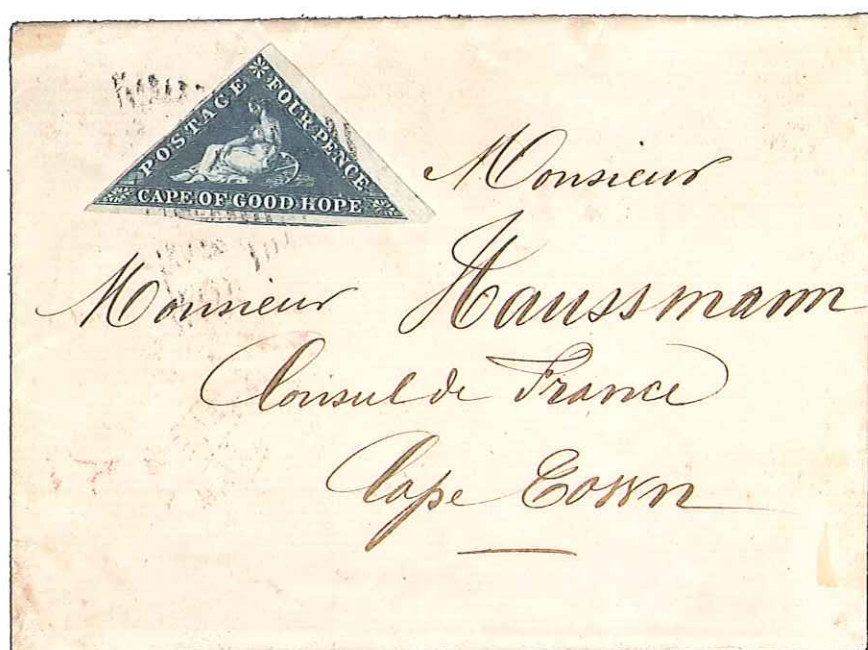 POSTAGE
FOUR PENCE
CAPE OF GOOD HOPE
Monsieur
Monsieur Haussmann
Consul de France
Cape Town